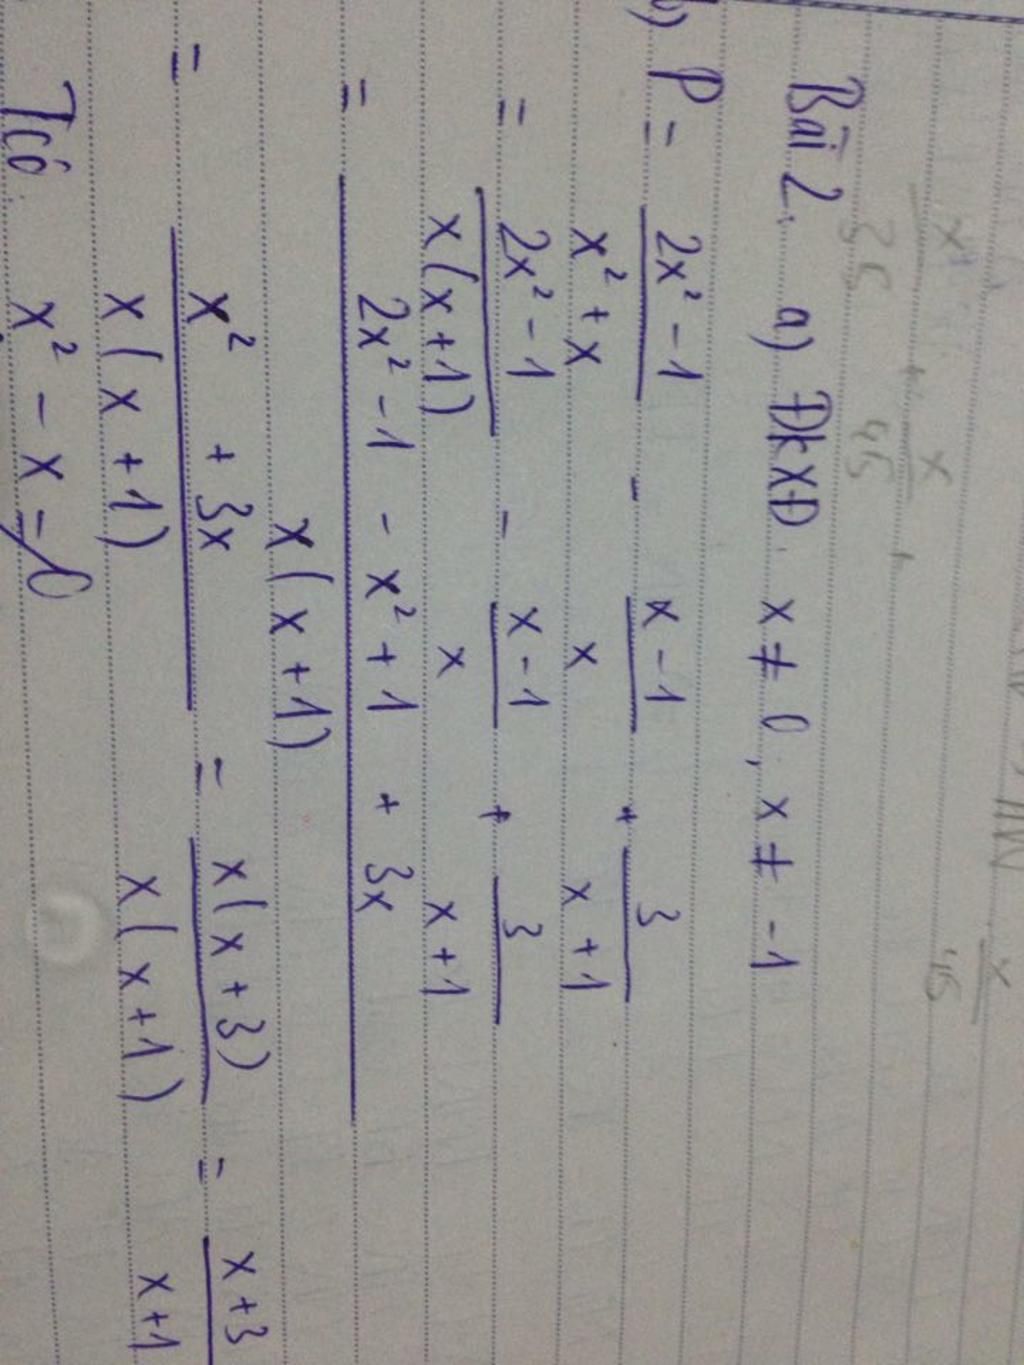 Bài 2. a) ĐKXĐ. x ≠ 0, x ≠ -1
b) P = (2x² - 1)/(x² + x) - (x - 1)/x + 3/(x + 1)
= (2x² - 1)/(x(x + 1)) - (x - 1)/x + 3/(x + 1)
= (2x² - 1 - x² + 1 + 3x)/(x(x + 1))
= (x² + 3x)/(x(x + 1)) = (x(x + 3))/(x(x + 1)) = (x + 3)/(x + 1)
Tcó. x² - x = 0